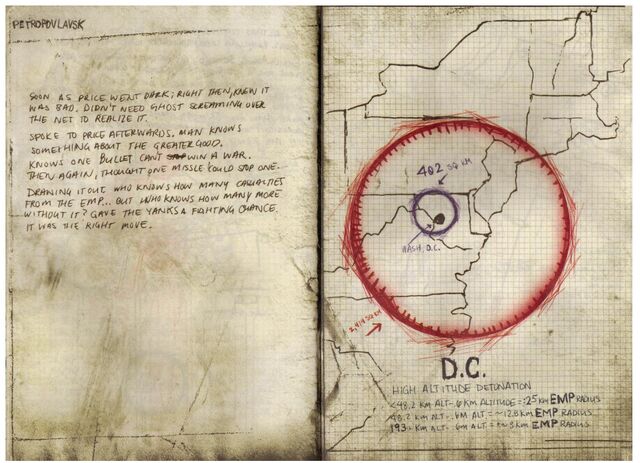 PETROPOVLAVSK
SOON AS PRICE WENT DARK; RIGHT THEN, KNEW IT
WAS BAD. DIDN'T NEED GHOST SCREAMING OVER
THE NET TO REALIZE IT.
SPOKE TO PRICE AFTERWARDS. MAN KNOWS
SOMETHING ABOUT THE GREATER GOOD.
KNOWS ONE BULLET CAN'T WIN A WAR.
THEN AGAIN, THOUGHT ONE MISSLE COULD STOP ONE...
DRAWING IT OUT, WHO KNOWS HOW MANY CASUALTIES
FROM THE EMP... BUT WHO KNOWS HOW MANY MORE
WITHOUT IT? GAVE THE YANKS A FIGHTING CHANCE.
IT WAS THE RIGHT MOVE.
402 SQ KM
WASH, D.C.
SQ KM
D.C.
HIGH ALTITUDE DETONATION
<48.2 KM ALT- 6 KM ALTITUDE = :25 KM EMP RADIUS
48.2 KM ALT- 6M ALT = ~12.8 KM EMP RADIUS
193- KM ALT- 6M ALT = ~ KM EMP RADIUS